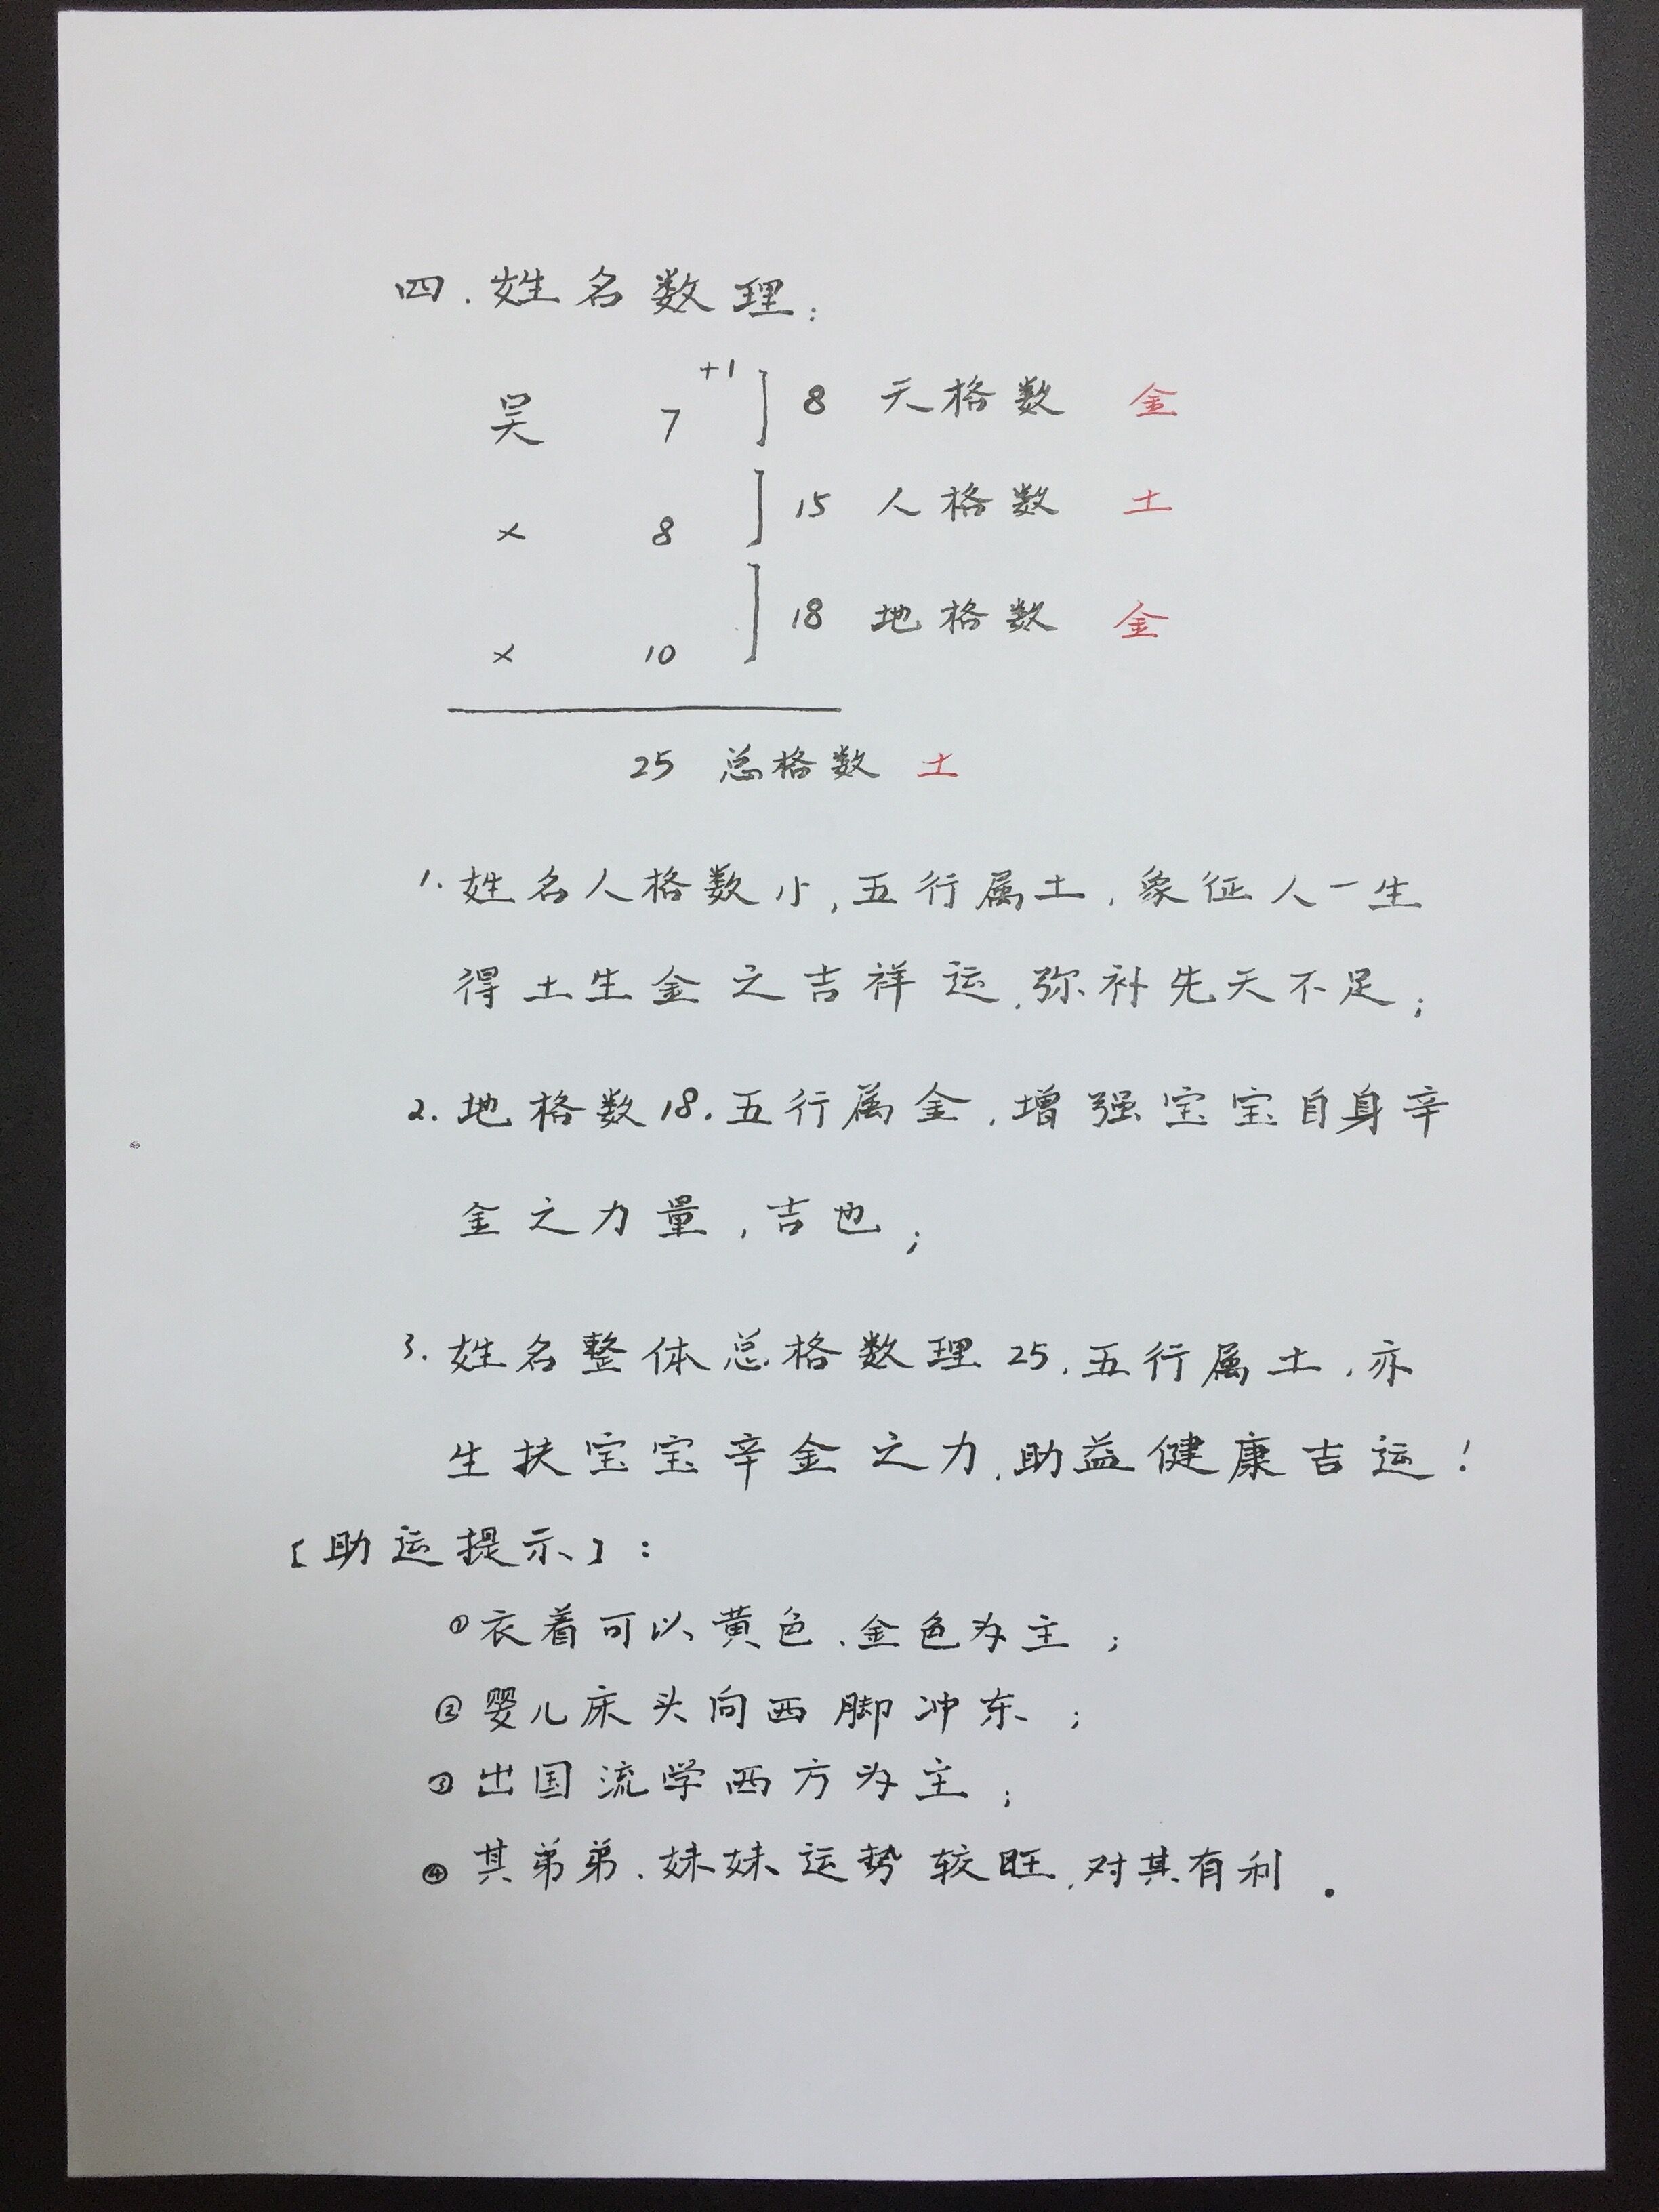 四.姓名数理:
+1
吴 7 ] 8 天格数 金
× 8 ] 15 人格数 土
× 10 ] 18 地格数 金
25 总格数 土
1.姓名人格数小,五行属土,象征人一生
得土生金之吉祥运,弥补先天不足;
2.地格数18.五行属金,增强宝宝自身辛
金之力量,吉也;
3.姓名整体总格数理25.五行属土,亦
生扶宝宝辛金之力,助益健康吉运!
[助运提示]:
①衣着可以黄色、金色为主;
②婴儿床头向西脚冲东;
③出国流学西方为主;
④其弟弟、妹妹运势较旺,对其有利.